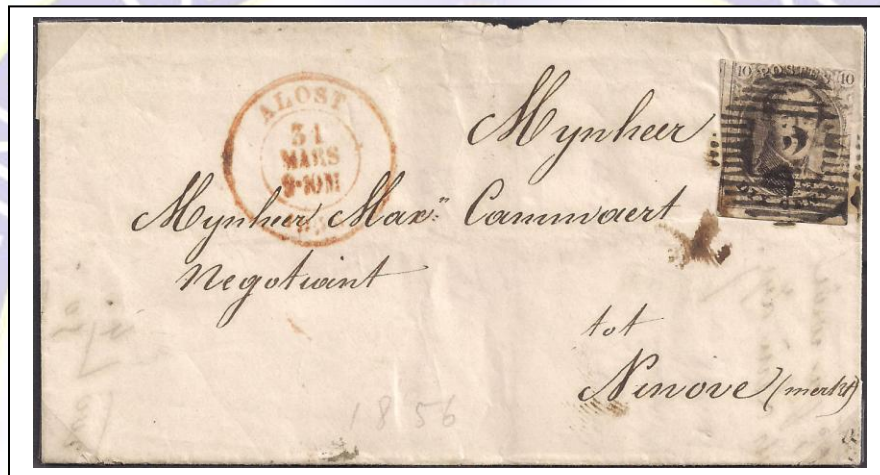 ALOST
31
MARS
9-10M
10 POSTES 10
5
Mynheer
Mynheer Max.n Cammaert
Negotiant
tot
Ninove (merkt)
1856